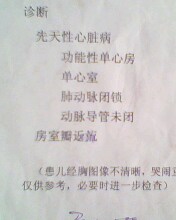 诊断
先天性心脏病
功能性单心房
单心室
肺动脉闭锁
动脉导管未闭
房室瓣返流
（患儿经胸图像不清晰，哭闹
仅供参考，必要时进一步检查）